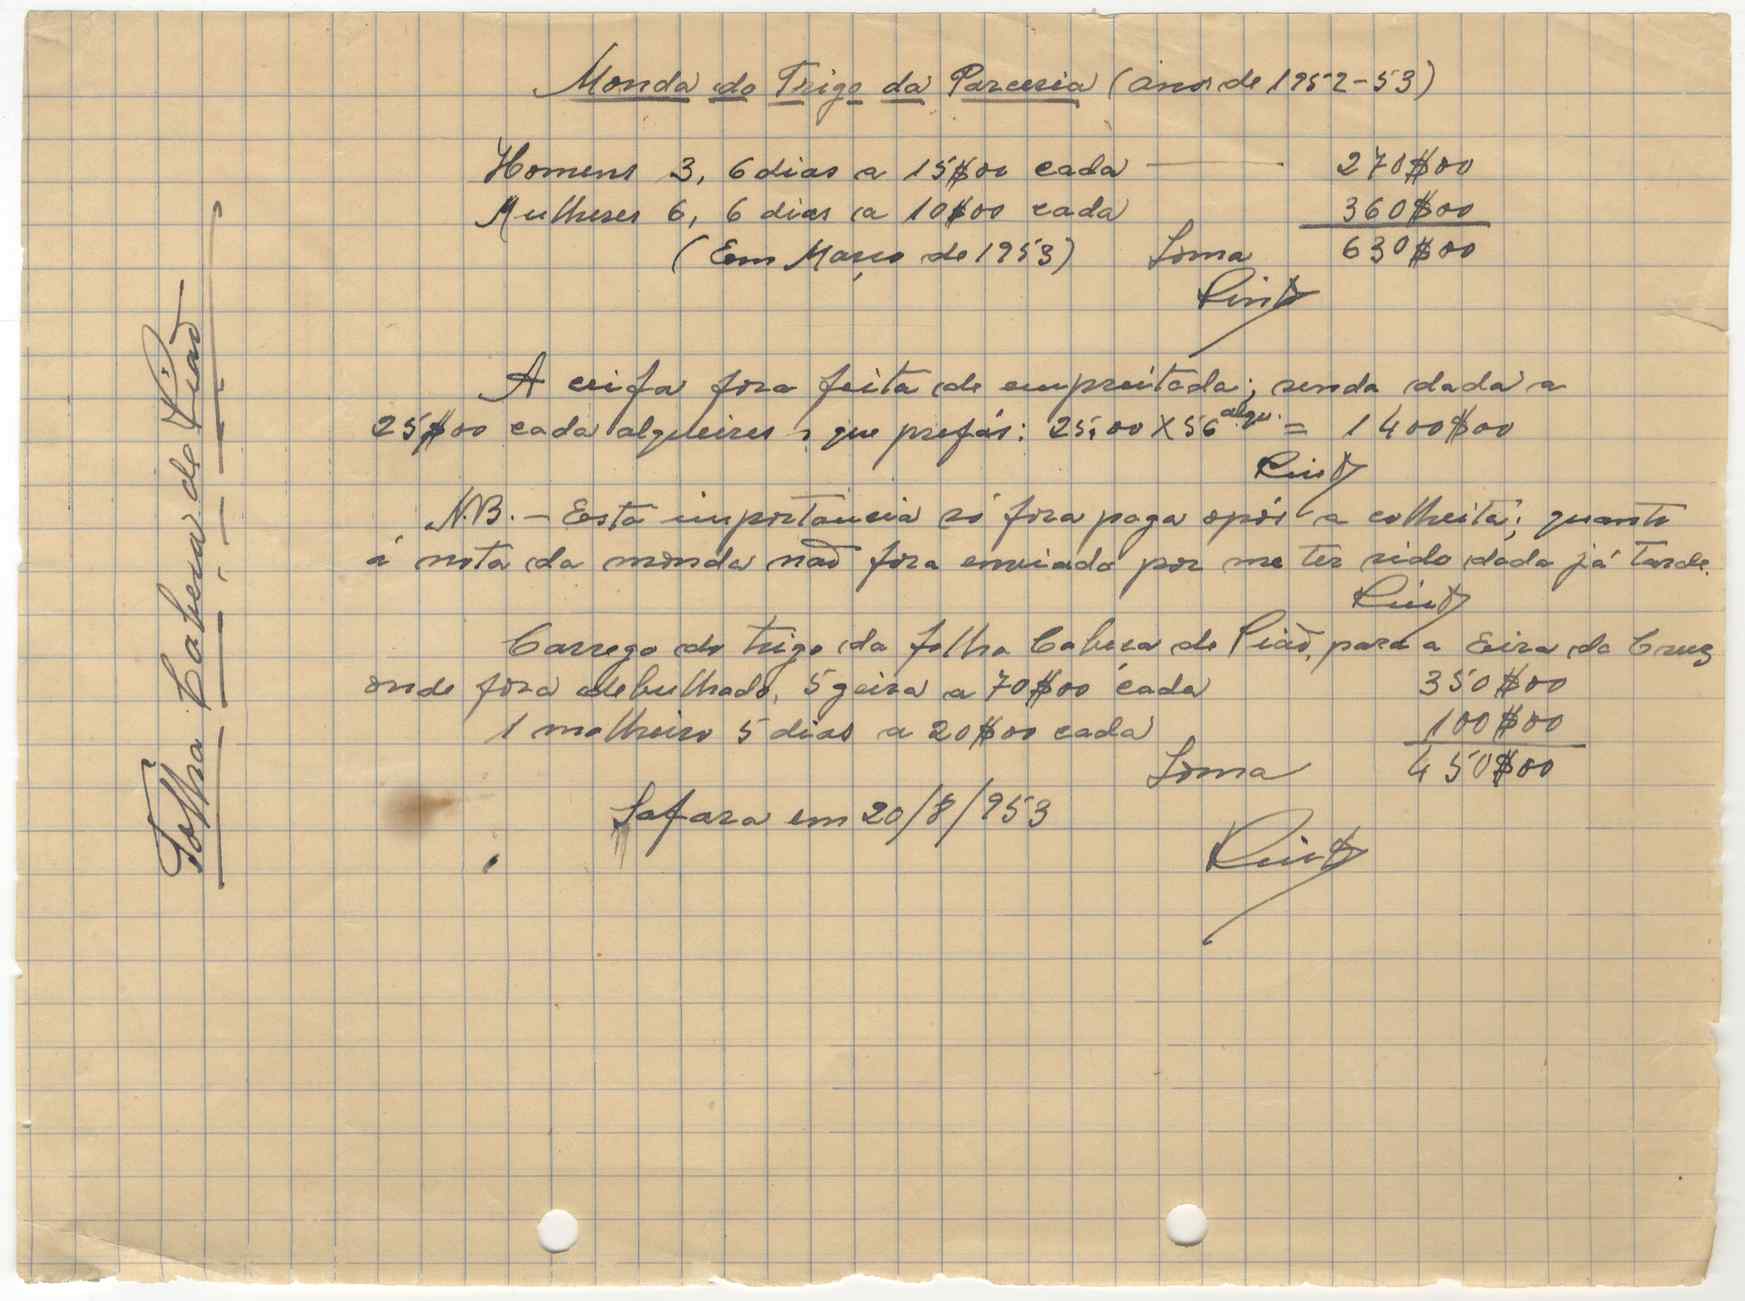 Folha Cabeça de Pião
Monda do Trigo da Parceria (ano de 1952-53)
Homens 3, 6 dias a 15$00 cada — 270$00
Mulheres 6, 6 dias a 10$00 cada 360$00
(Em Março de 1953) Soma 630$00
A ceifa fora feita de empreitada; senda dada a
25$00 cada alqueires, que prefás: 25,00 X 56 alqu. = 1400$00
N.B. - Esta importancia só fora paga após a colheita; quanto
á nota da monda não fora enviada por me ter sido dada já tarde.
Carrego do trigo da folha Cabeça de Pião, para a Eira da Cruz
onde fora debulhado, 5 geira a 70$00 cada 350$00
1 molheiro 5 dias a 20$00 cada 100$00
Soma 450$00
Safara em 20/8/953